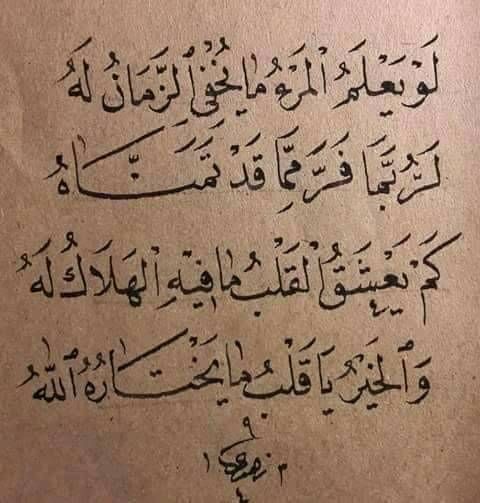 لَوْ يَعْلَمُ الْمَرْءُ مَا يُخْفِي الزَّمَانُ لَهُ
لَرُبَّمَا فَرَّ مِمَّا قَدْ تَمَنَّاهُ
كَمْ يَعْشَقُ الْقَلْبُ مَا فِيهِ الْهَلَاكُ لَهُ
وَالْخَيْرُ يَا قَلْبُ مَا يَخْتَارُهُ اللهُ